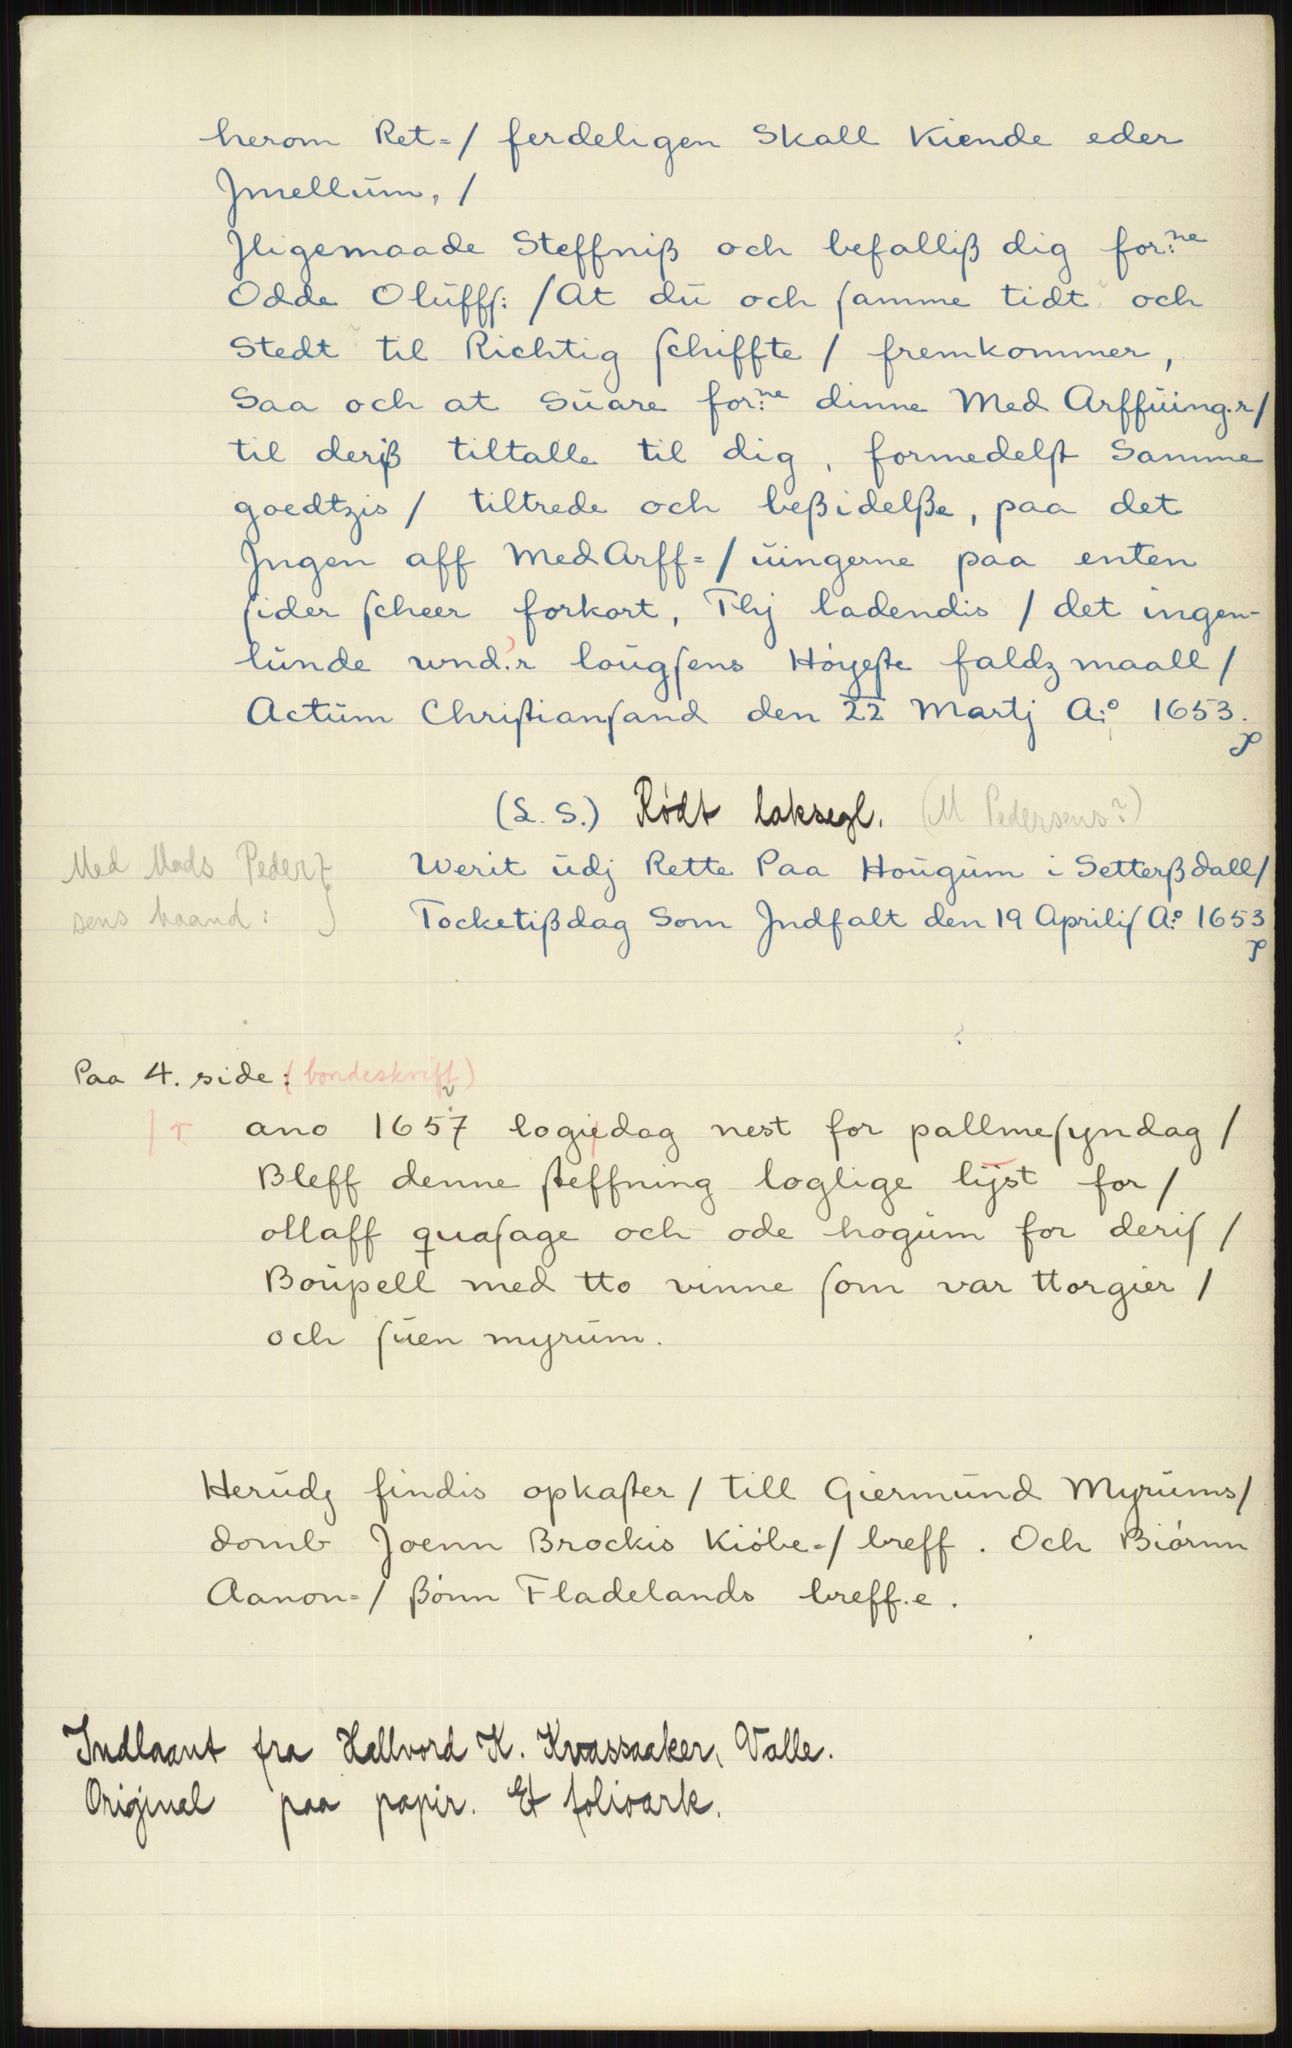 herom Ret=/ ferdeligen Skall Kiende eder
Jmellům, /
Jligemaade Steffniß och befalliß dig for:ne
Odde Olůffſ: /At dů och ſamme tidt och
Stedt til Richtig ſchiffte / fremkommer,
Saa och at Sůare for:ne dinne Med Arffůing.r/
til deriß tiltalle til dig, formedelſt Samme
goedtzis / tiltrede och beßidelße, paa det
Jngen aff MedArff=/ůingerne paa enten
ſider ſcheer forkort, Thj ladendis / det ingen-
lůnde wnd.r loůgſens Höyeſte faldz maall /
Actům Chriſtianſand den 22 Martj A:o 1653.
(L. S.) Rødt laksegl. (M Pedersens?)
Med Mads Peder-
sens haand:
Werit ůdj Rette Paa Hoůgům i Setterßdall/
Tocketißdag Som Jndfalt den 19 Apriliſ A:o 1653
Paa 4. side: (bondeskrift)
/ r
ano 1657 logiedag nest for pallmeſyndag /
Bleff denne ſteffning loglige lijst for /
ollaff quaſage och ode hogům for deriſ /
Boůpell med tto vinne ſom var ttorgier /
och ſůen myrům.
Herůdj findis opkaſter / till Giermůnd Myrůms/
domb Joenn Brockis Kiöbe=/ breff. Och Biörnn
Aanon=/ ßönn Fladelands breff.e.
Indlaant fra Hallvord K. Kvassaaker, Valle.
Original paa papir. Et folioark.